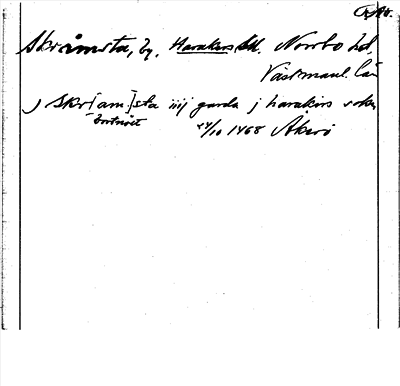 Skråmsta, by, Harakers sd. Norrbo hd,
Västmanl. län
j Skr[am]sta iiij garda j harakirs sokn
bortnött
24/10 1468 Åkerö